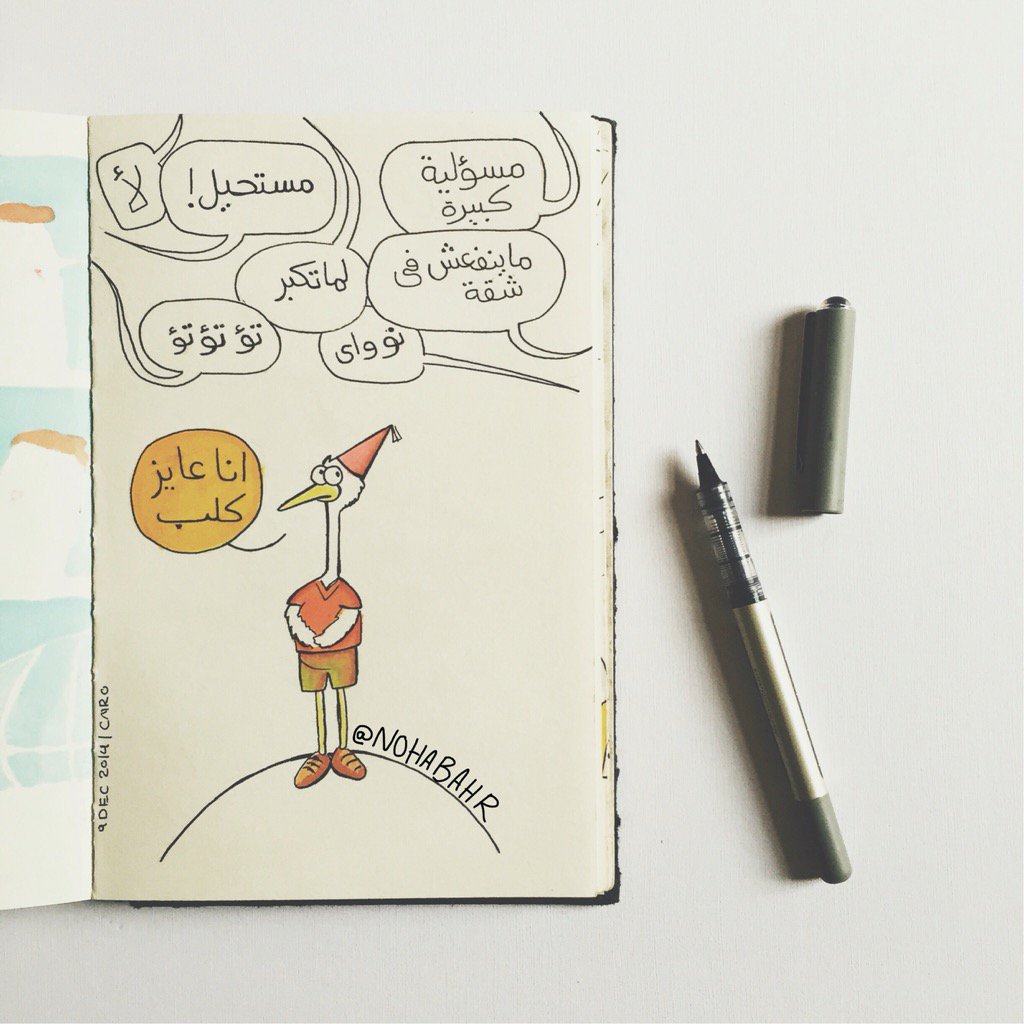 مسؤلية
كبيرة
مستحيل!
لأ
ماينفعش فى
شقة
لما تكبر
نؤ واى
تؤ تؤ تؤ
انا عايز
كلب
@NOHABAHR
9 DEC 2014 | CAIRO